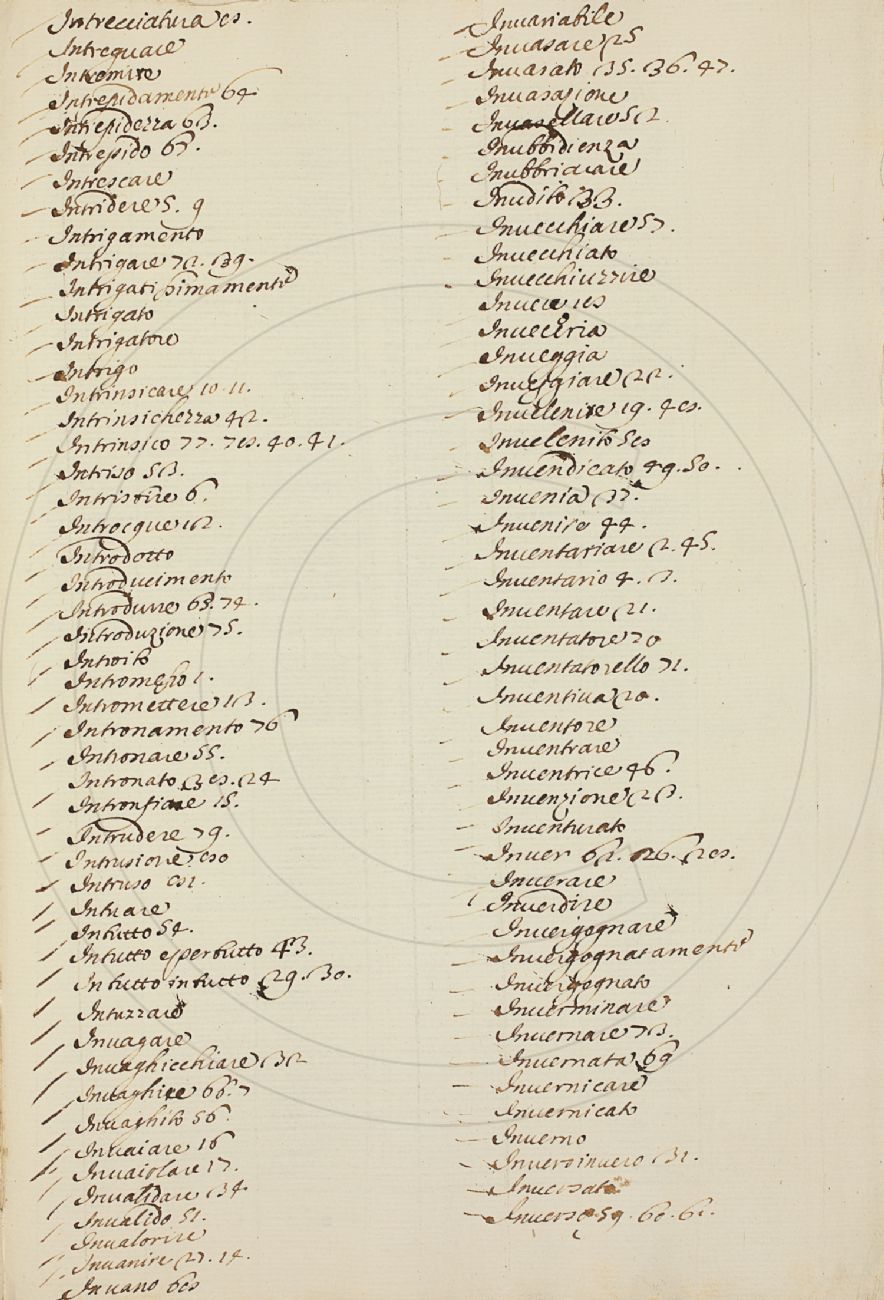 Intrecciatura 8.
Intreguare
Intremire
Intrepidamente 64
Intrepidezza 63.
Intrepido 65.
Intrescare
Intridere 5. 9
Intrigamento
Intrigare 72. 39.
Intrigatissimamente
Intrigato
Intrigatore
Intrigo
Intrinsicare 10. 11.
Intrinsichezza 42.
Intrinsico 77. 78. 40. 41.
Intriso 53.
Intristire 6.
Introcque 12.
Introdotto
Introducimento
Introdurre 68. 74.
Introduzione 75.
Introito
Intromesso 1.
Intromettere 13.
Intronamento 76
Intronare 55.
Intronato 38. 24
Intronfiare 15.
Intrudere 79.
Intrusione 80
Intruso 81.
Intuare
Intutto 54.
Intutto e per tutto 43.
In tutto in tutto 29. 30.
Intuzzare
Invagare
Invaghicchiare 32
Invaghire 66. 7
Invaghito 56.
Invaiare 16
Invaiolare 17.
Invalidare 34
Invalido 51.
Invalorire
Invanire 27. 14.
Invano 68
Invariabile
Invasare 25
Invasato 35. 36. 47.
Invasazione
Invasellare 52.
Inubbidienza
Inubbriacare
Inudito 33.
Invecchiare 57.
Invecchiato
Invecchiuzzire
Invece 18
Inveceria
Inveggia
Inveggiare 22.
Invelenire 19. 48.
Invelenito 58
Invendicato 49. 50.
Invenia 37.
Invenire 44.
Inventariare 2. 45.
Inventario 4. 3.
Inventare 21.
Inventatore 70
Inventatorello 71.
Inventiva 20.
Inventore
Inventrare
Inventrice 46.
Invenzione 23.
Inventurato
Inver 62. 26. 28.
Inverare
Inverdire
Invergognare
Invergognatamente
Invergognato
Inverminare
Invernare 73.
Invernata 69
Invernicare
Invernicato
Inverno
Invero invero 31.
Inversato
Inverso 59. 60. 61.